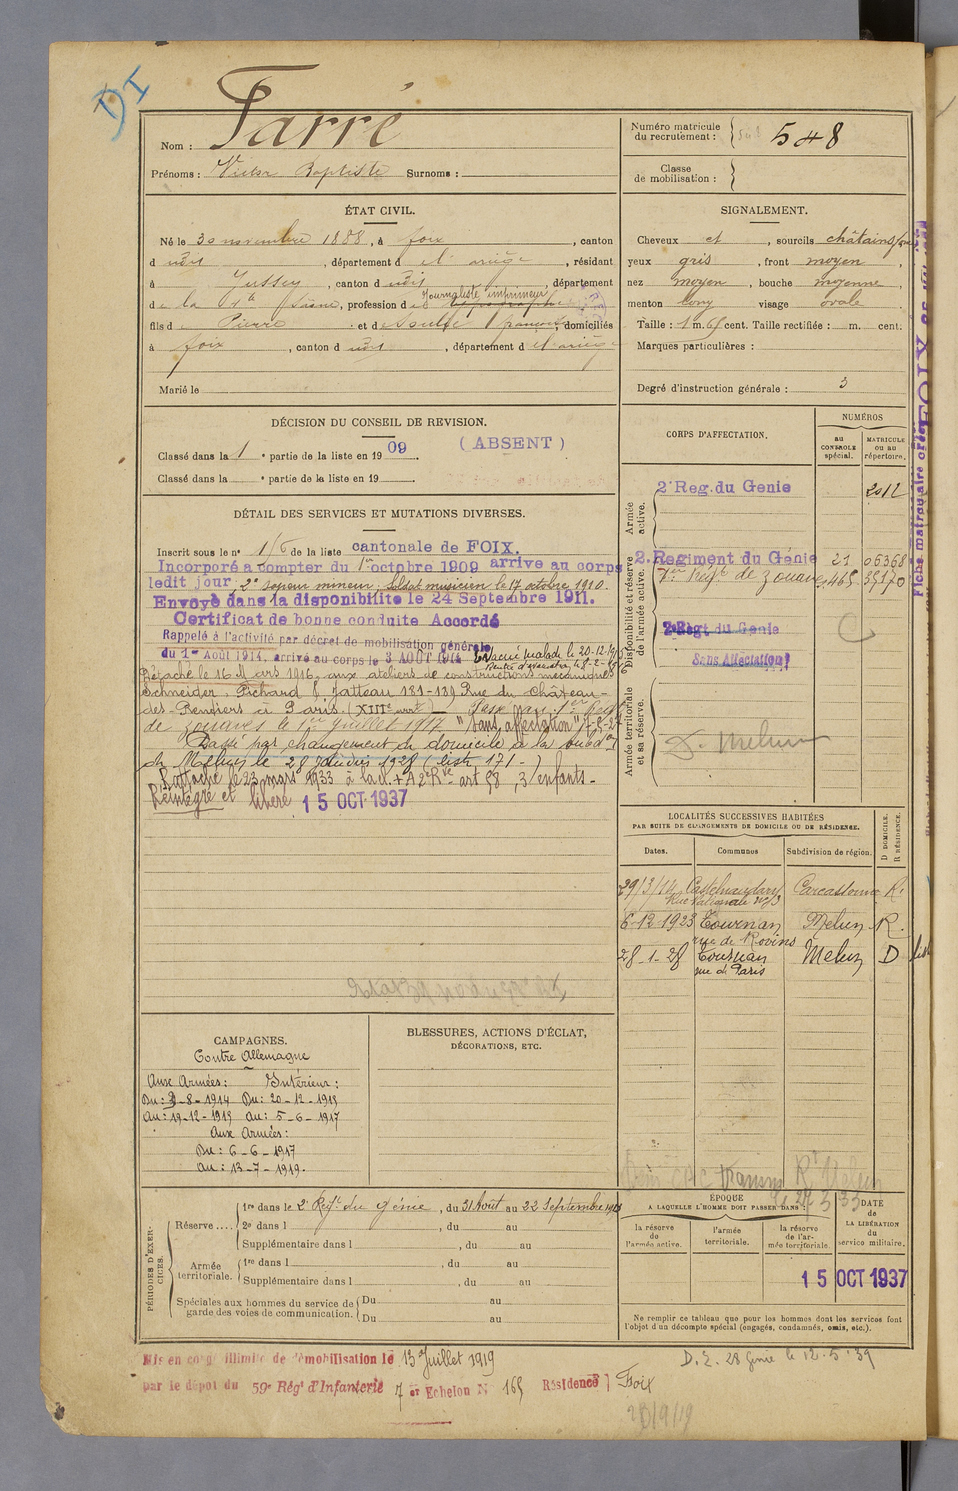 DI
Nom : Farré
Prénoms : Victor Baptiste Surnoms :
Numéro matricule
du recrutement : 548
Classe
de mobilisation :
ÉTAT CIVIL.
Né le 30 novembre 1888, à foix, canton
d udit, département d el'ariège, résidant
à Jussey, canton d udit, département
d e la Hte Saône, profession d e Journaliste imprimeur
fils d e Pierre et d domiciliés
à foix, canton d udit, département d el'ariège
Marié le
SIGNALEMENT.
Cheveux et, sourcils châtains
yeux gris, front moyen,
nez moyen, bouche moyenne,
menton long visage ovale
Taille : 1 m. 65 cent. Taille rectifiée : m. cent.
Marques particulières :
Degré d'instruction générale : 3
DÉCISION DU CONSEIL DE REVISION.
Classé dans la 1 e partie de la liste en 1909 (ABSENT)
Classé dans la e partie de la liste en 19
DÉTAIL DES SERVICES ET MUTATIONS DIVERSES.
Inscrit sous le n° 116 de la liste cantonale de FOIX.
Incorporé à compter du 1er octobre 1909 arrivé au corps
ledit jour, 2e sapeur mineur, Soldat musicien le 17 octobre 1910.
Envoyé dans la disponibilité le 24 Septembre 1911.
Certificat de bonne conduite Accordé
Rappelé à l'activité par décret de mobilisation générale
du 1er Août 1914, arrivé au corps le 3 AOUT 1914 Evacué malade le 20-12-
Détaché le 16 Mars 1916, aux ateliers de constructions mécaniques
Schneider, Pichard & Jatteau 131-139 Rue du Château-
des-Rentiers à Paris (XIIIe arrt) Passé au 1er Regt
de zouaves le 1er juillet 1917 "Sans affectation"
Passé par changement de domicile à la subdon
de Melun le 28 Janvier 1928 (liste 171-)
Rattaché le 23 mars 1933 à la cl. + A 2e Rve art 58, 3 enfants-
Réintégré et libéré 15 OCT 1937
CORPS D'AFFECTATION.
NUMÉROS
AU CONTROLE spécial.
MATRICULE ou au répertoire.
Armée active.
2e Reg. du Genie 2012
Disponibilité et réserve de l'armée active.
2e Regiment du Génie 21 05368
1er Régt de zouaves 465 35170
2e Régt du Genie
Sans Affectation
Armée territoriale et sa réserve.
D. Melun
LOCALITÉS SUCCESSIVES HABITÉES
PAR SUITE DE CHANGEMENTS DE DOMICILE OU DE RÉSIDENCE.
Dates. Communes Subdivision de région. D DOMICILE. R RÉSIDENCE.
29/3/12 Castelnaudary Carcassonne R.
Rue Nationale N° 3
6-12-1923 Tournan Melun R.
rue de Rovins
28-1-28 Tournan Melun D
rue de Paris
CAMPAGNES.
Contre Allemagne
Aux Armées : Intérieur :
Du : 3-8-1914 Du : 20-12-1915
Au : 19-12-1915 au : 5-6-1917
Aux Armées :
Du : 6-6-1917
au : 13-7-1919.
BLESSURES, ACTIONS D'ÉCLAT,
DÉCORATIONS, ETC.
PÉRIODES D'EXERCICES.
Réserve ....
1re dans le 2e Régt du génie, du 31 Août au 22 Septembre
2e dans l , du au
Supplémentaire dans l , du au
Armée territoriale.
1re dans l , du au
Supplémentaire dans l , du au
Spéciales aux hommes du service de garde des voies de communication.
Du au
Du au
ÉPOQUE
A LAQUELLE L'HOMME DOIT PASSER DANS :
la réserve de l'armée active.
l'armée territoriale.
la réserve de l'armée territoriale.
DATE de LA LIBÉRATION du service militaire.
15 OCT 1937
Ne remplir ce tableau que pour les hommes dont les services font
l'objet d'un décompte spécial (engagés, condamnés, omis, etc.).
Mis en congé illimité de démobilisation le 13 Juillet 1919
par le dépôt du 59e Régt d'Infanterie 7 er Echelon N° 165 Résidence Foix
D. E. 28 Genie le 12-5-39